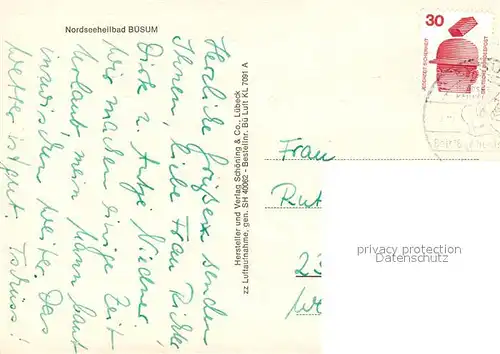 Nordseeheilbad BÜSUM
Herzliche Grüße senden
Ihnen, liebe Frau Richter
Dirk u. Antje
Wir machen einige Zeit
Urlaub mein Mann baut
inzwischen weiter. Das
Wetter ist gut. Tschüss!
Hersteller und Verlag Schöning & Co., Lübeck
zz Luftaufnahme, gen. SH 40062 - Bestellnr. Bü Luft KL 7091 A
30
JEDERZEIT SICHERHEIT
DEUTSCHE BUNDESPOST
Frau
privacy protection
AnsichtskartenVersand.com